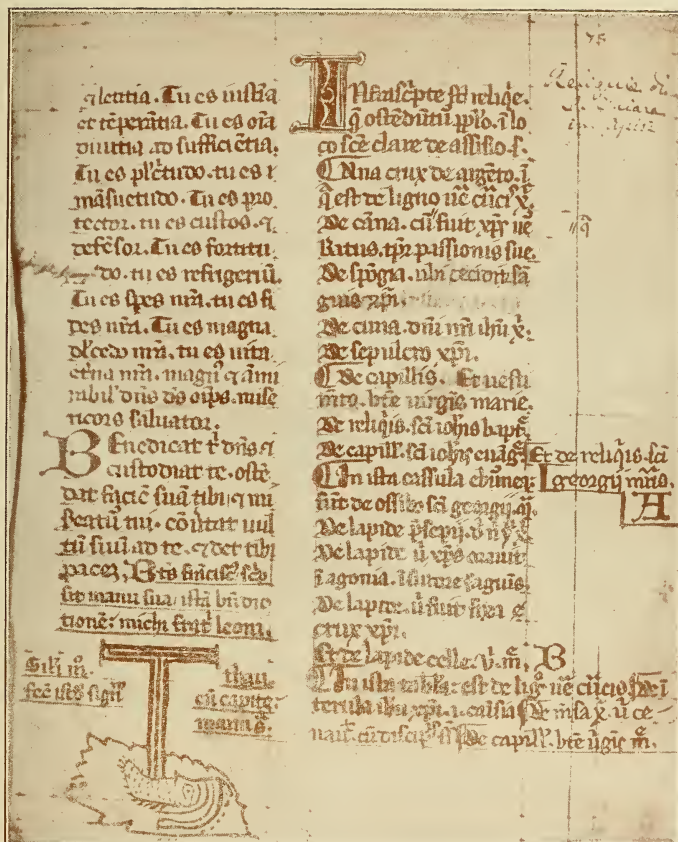 ⁊ letitia. Tu es iustitia
et tẽperãtia. Tu es oĩa
diuitia ad sufficiẽtia.
mãsuetudo. Tu es pro
tector. tu es custos. ⁊
defẽsor. Tu es fortitu
do. tu es refrigeriũ.
Tu es spes nrã. tu es fi
des nrã. Tu es magna
dl̃cedo nrã. tu es uita
et̃na nrã. magn᷒ ⁊ ãmi
rabil᷒ dñs ds̃ oĩps. mise
ricors saluator.
Benedicat t̃ dñs ⁊
custodiat te. ostẽ
dat faciẽ suã tibi ⁊ mi
sereat᷒ tui. cõũtat uul
tũ suũ ad te. ⁊ det tibi
pacez. Bt̃s frãcisc᷒ sc̃p
sit manu sua istã bñdic
tionẽ michi fratri leoni.
Sil̃r mº
fec̃ istd̃ signũ
thau
cũ capite
manu s̃.
Infrasc̃pte st̃ reliq̃e.
q̃ ostẽdũtũ pp̃lo. ĩ lo
co sc̃e clare de assisio. s̃.
Una crux de argẽto. ĩ
q̃ est de ligno uẽ cr̃ucis x̃.
De cãna. cũ fuit xp̃s ue
De spõgia. ubi cecidit sã
guis xp̃i.
De cuna. dñi nr̃i ihũ x̃.
De sepulcro xp̃i.
De capillis. Et uesti
mẽto. btẽ uirgis̃ marie.
De reliq̃is. sc̃i ioh̃is bapt̃.
De capill̃. sc̃i ioh̃is euãg̃
Et de reliq̃is. sc̃i
georgij mr̃is.
A
In ista cassula eburnea
sũt de ossib᷒ sc̃i georgij. m̃.
De lapide p̃sepij. ũ
De lapide ũ xp̃s orauit
ĩ agonia.
De lapide. ũ fuit fixa
crux xp̃i.
Et de lapide celle. ũ. m̃. B
In ista tabl̃a: est de lig̃º uẽ cr̃ucis
De m̃sa x̃. ũ ce
nauit cũ discip̃l᷒ s̃. De capill̃. btẽ ũgis̃ m̃.
75
Reliquie di
S. Chiara